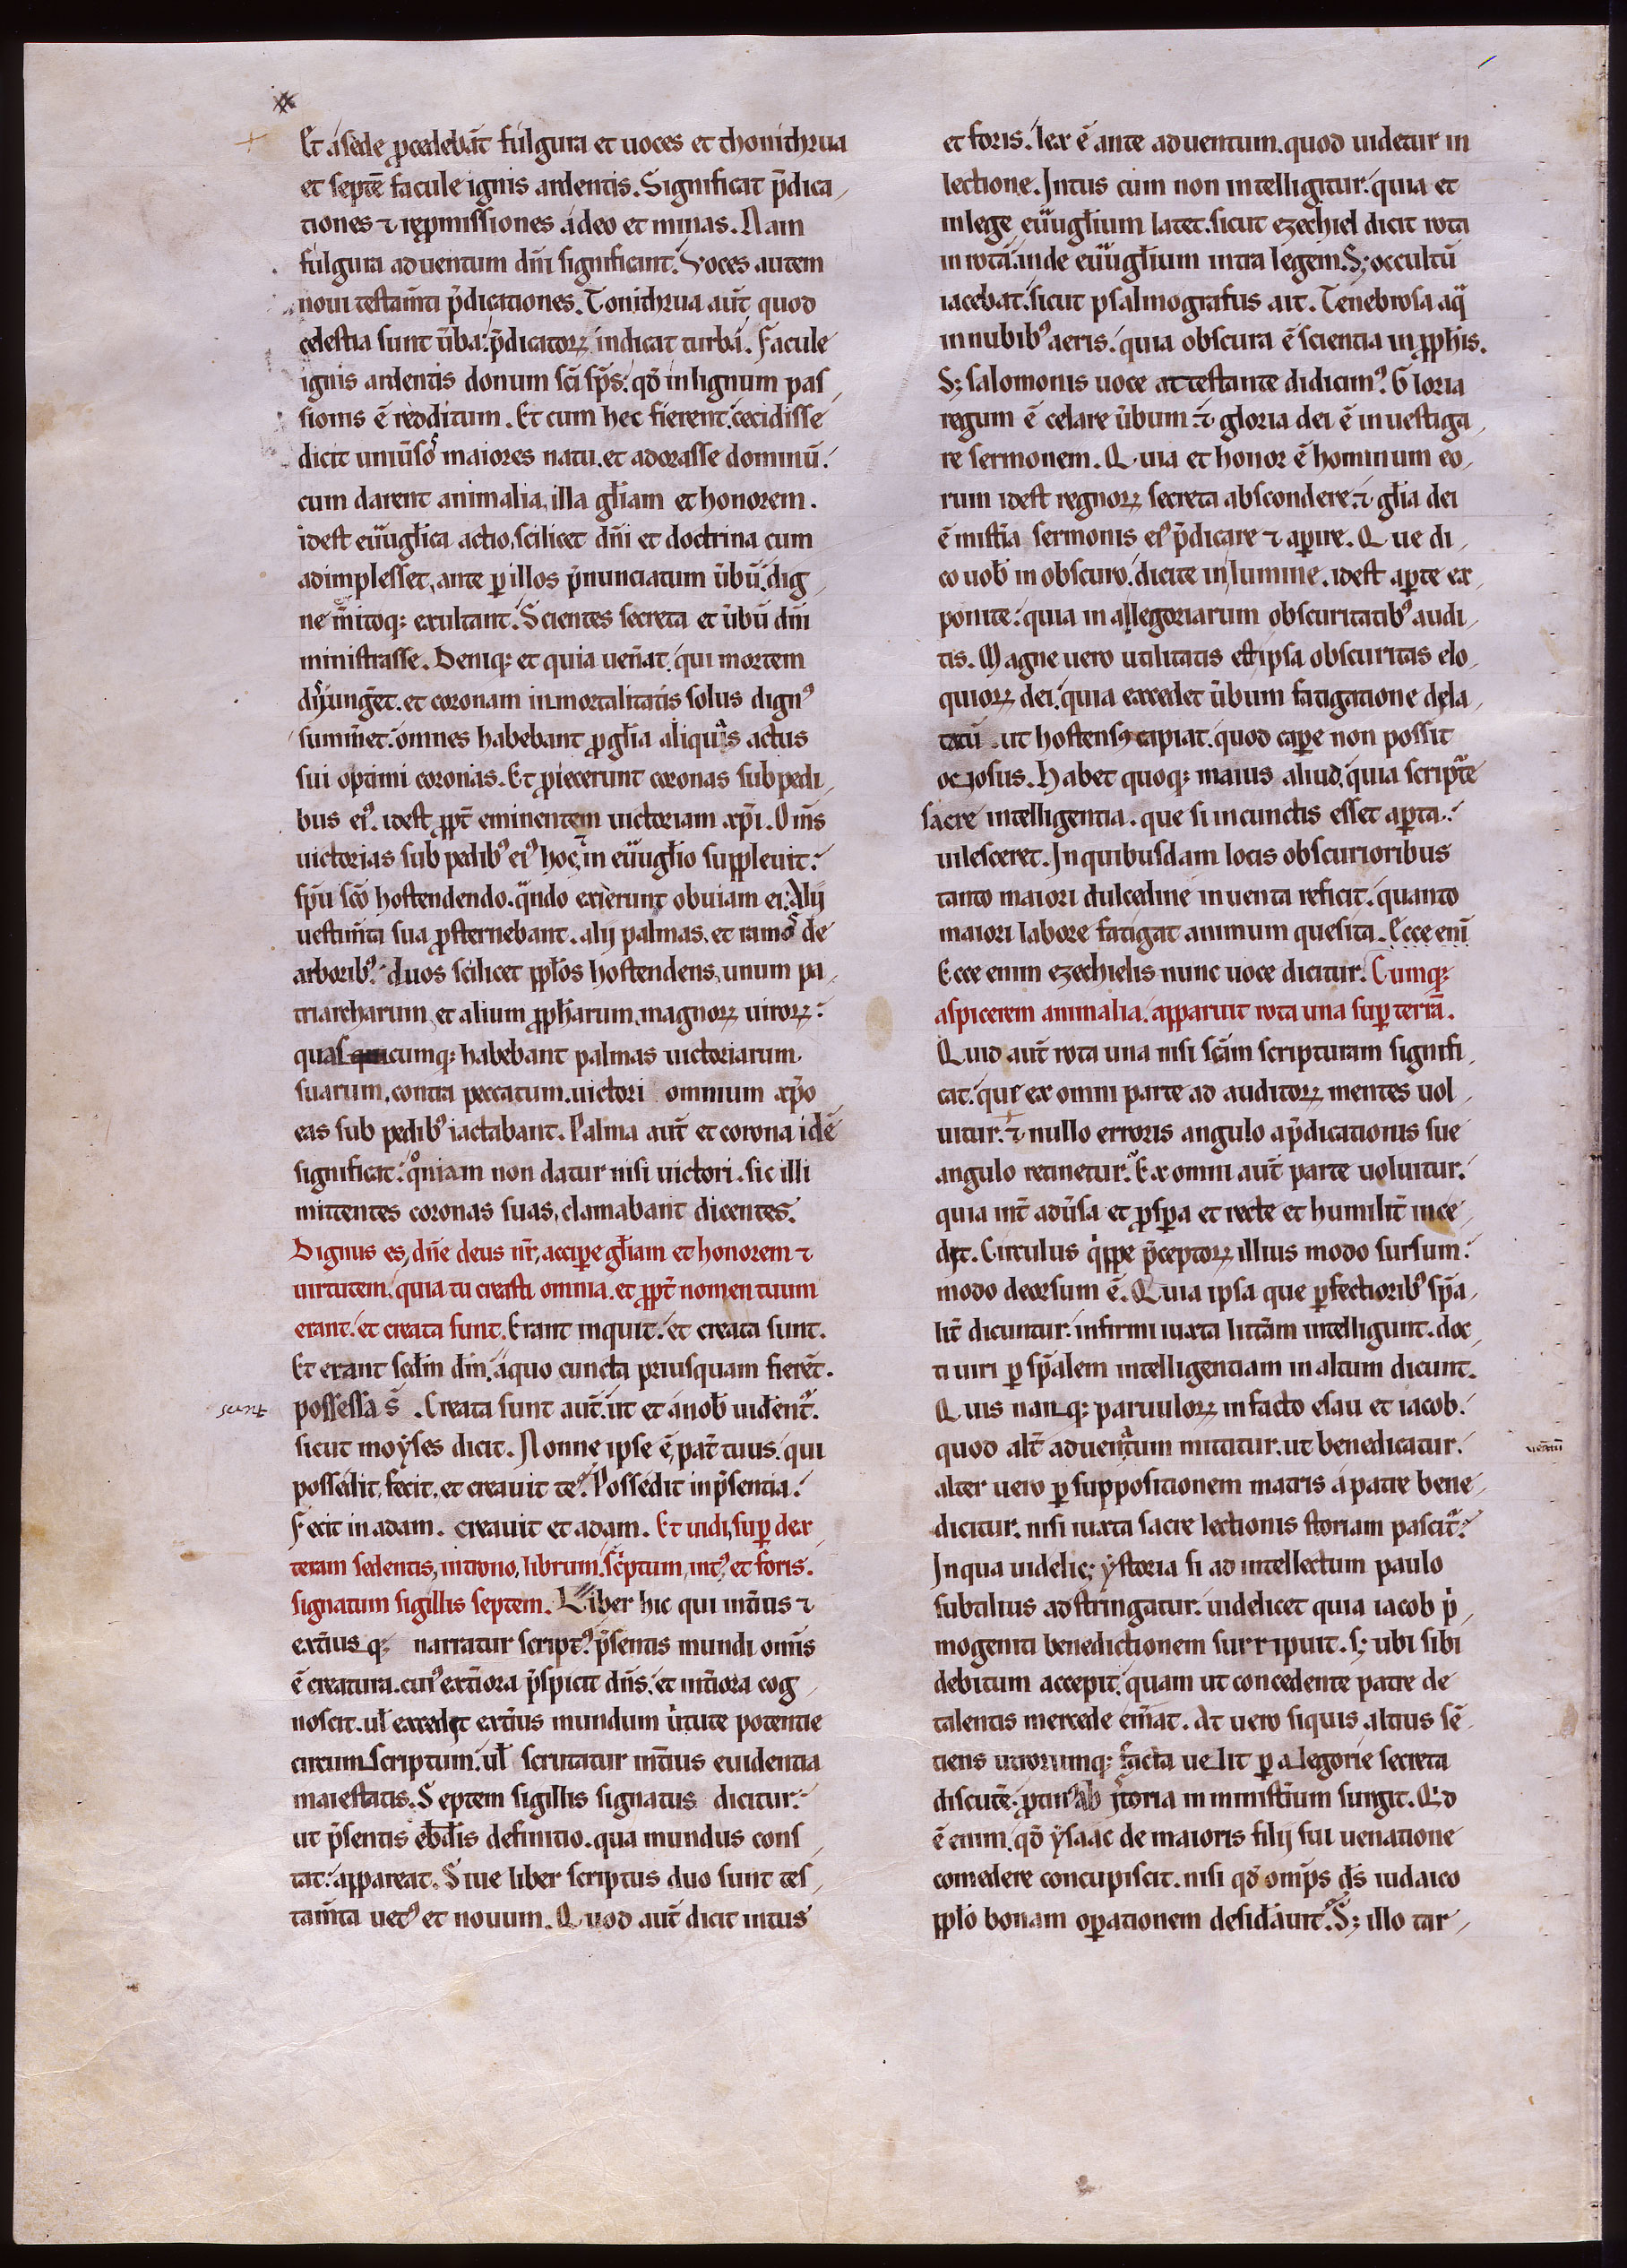 Et a sede ꝓcedebāt fulgura et uoces et thonithrua
et septē facule ignis ardentis. Significat p̄dica
tiones ⁊ reꝓmissiones a deo et minas. Nam
fulgura aduentum dn̄i significant. Voces autem
noui testam̄ti p̄dicationes. Tonithrua aut̄ quod
celestia sunt ūba: p̄dicatorꝝ indicat turba. Facule
ignis ardentis donum sc̄i sp̄s. qd̄ in lignum pas
sionis ē redditum. Et cum hec fierent. cecidisse
dicit uniūsos maiores natu. et adorasse dominū.
cum darent animalia illa gl̄iam et honorem.
idest euuangl̄ica actio, scilicet dn̄i et doctrina cum
adimplesset, ante ꝑ illos p̄nunciatum ūbū. dig
ne m̄itoqꝫ exultant. Scientes secreta et ūbū dn̄i
ministrasse. Deniqꝫ et quia uen̄at. qui mortem
et coronam inmortalitatis solus dignꝰ
summ̄et. omnes habebant ꝓ gl̄ia actus
sui optimi coronas. Et ꝓiecerunt coronas sub pedi
bus eiꝰ. idest ꝓpt̄ eminentem uictoriam xp̄i. Om̄s
uictorias sub pedibꝰ eiꝰ hoc in euuangl̄io suppleuit.
sp̄u sc̄o hostendendo. qn̄do exierunt obuiam ei. Alij
uestim̄ta sua ꝓsternebant. alij palmas. et ramos de
arboribꝰ. duos scilicet ppl̄os hostendens, unum pa
triarcharum, et alium ꝓph̄arum, magnorꝝ uirorꝝ.
quascumqꝫ habebant palmas uictoriarum
suarum, contra peccatum. uictori omnium xp̄o
eas sub pedibꝰ iactabant. Palma aut̄ et corona idē
significat. quoniam non datur nisi uictori. sic illi
mittentes coronas suas, clamabant dicentes.
Dignus es, dn̄e deus nr̄, accipe gl̄iam et honorem ⁊
uirtutem. quia tu creasti omnia. et ꝓpt̄ nomen tuum
erant. et creata sunt. Erant inquit. et creata sunt.
Et erant scd̄m dm̄, a quo cuncta priusquam fierēt.
sunt
possessa s̄. Creata sunt aut̄. ut et a nob̄ uidentꝰ.
sicut moyses dicit. Nonne ipse ē, pat̄ tuus. qui
possedit, fecit, et creauit te. Possedit in p̄sentia.
Fecit in adam. creauit et adam. Et uidi, suꝑ dex
teram sedentis, in trono, librum. sc̄ptum, intꝰ et foris.
signatum sigillis septem. Liber hic qui int̄ius ⁊
ext̄iusqꝫ narratur scriptꝰ. p̄sentis mundi omīs
ē creatura. cuiꝰ ext̄iora ꝑspicit dn̄s, et int̄iora cog
noscit. ul̄ excedit ext̄ius mundum ūtute potentie
circumscriptum. ul̄ scrutatur int̄ius euidentia
maiestatis. Septem sigillis signatus dicitur.
ut p̄sentis ebd̄is definitio. qua mundus cons
tat. appareat. Siue liber scriptus duo sunt tes
tam̄ta uetꝰ et nouum. Quod aut̄ dicit intus
et foris. lex ē ante aduentum. quod uidetur in
lectione. Intus cum non intelligitur. quia et
in lege euuangl̄ium latet. sicut ezechiel dicit rota
in rota. inde euuangl̄ium intra legem. Sꝫ occultū
iacebat. sicut psalmografus ait. Tenebrosa aqᵃ
in nubibꝰ aeris. quia obscura ē scientia in ꝓph̄is.
Sꝫ salomonis uoce attestante didicimꝰ. Gloria
regum ē celare ūbum. ⁊ gloria dei ē inuestiga
re sermonem. Quia et honor ē hominum eo
rum idest regnorꝝ secreta abscondere. ⁊ gl̄ia dei
ē mist̄ia sermonis eiꝰ p̄dicare ⁊ aꝑire. Que di
co uob̄ in obscuro. dicite in lumine. idest aꝑte ex
ponite. quia in allegoriarum obscuritatibꝰ audi
tis. Magne uero utilitatis est ipsa obscuritas elo
quiorꝝ dei. quia excedet ūbum fatigatione dela
ut capiat. quod caꝑe non possit
ociosus. Habet quoqꝫ maius aliud, quia scripture
sacre intelligentia. que si in cunctis esset aꝑta.
uilesceret. In quibusdam locis obscurioribus
tanto maiori dulcedine inuenta reficit. quanto
maiori labore fatigat animum quesita. Ecce enī
Ecce enim ezechielis nunc uoce dicitur. Cumqꝫ
aspicerem animalia. apparuit rota una suꝑ terrā.
Quid aut̄ rota una nisi sc̄am scripturam signifi
cat. que ex omni parte ad auditorꝝ mentes uol
uitur. ⁊ nullo erroris angulo a p̄dicationis sue
angulo retinetur. Ex omni aut̄ parte uoluitur.
quia int̄ adūsa et ꝓsꝑa et recte et humilit̄ ince
dit. Circulus qⁱppe p̄ceptorꝝ illius modo sursum.
modo deorsum ē. Quia ipsa que ꝑfectioribꝰ sp̄a
lit̄ dicuntur. infirmi iuxta litt̄am intelligunt. doc
ti uiri ꝑ sp̄alem intelligentiam in altum dicunt.
Quis namqꝫ paruulorꝝ in facto esau et iacob.
quod alt̄ aduentum mittitur. ut benedicatur.
alter uero ꝑ suppositionem matris a patre bene
dicitur. nisi iuxta sacre lectionis storiam pascit̄.
In qua uidelicꝫ ystoria si ad intellectum paulo
subtilius adstringatur. uidelicet quia iacob pⁱ
mogeniti benedictionem surripuit. sꝫ ubi sibi
debitum accepit, quam ut concedente patre de
talentis mercede em̄at. At uero siquis altius sē
tiens utrorumqꝫ facta uelit ꝑ alegorie secreta
discut̄e. in minist̄ium surgit. Qⁱd
ē enim. qd̄ ysaac de maioris filij sui uenatione
comedere concupiscit. nisi qd̄ omp̄s ds̄ iudaico
ppl̄o bonam oꝑationem desid̄auit. Sꝫ illo tar